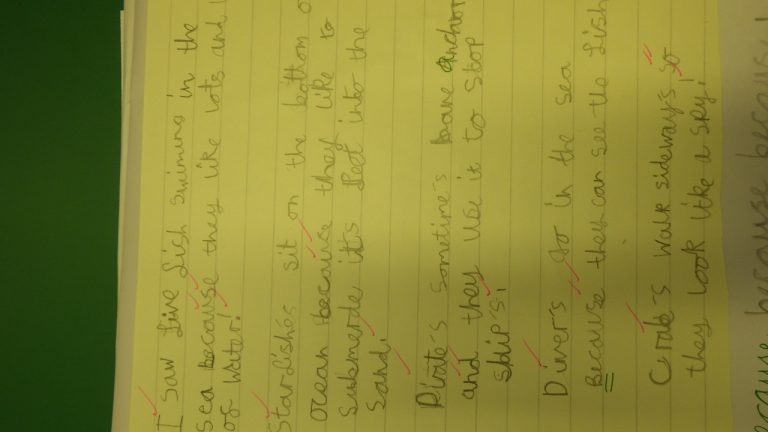 I saw five fish swimins in the
sea because they like lots and
of water!
Starfishes sit on the bottom o
ocean because they like to
submerde it's feet into the
sand.
Pirate's sometime's have anchor
and they use it to stop
ship's!
Diver's go in the sea
Because they can see the fish
Crab's walk sideways so
they look like a spy!
because because
because
ecause